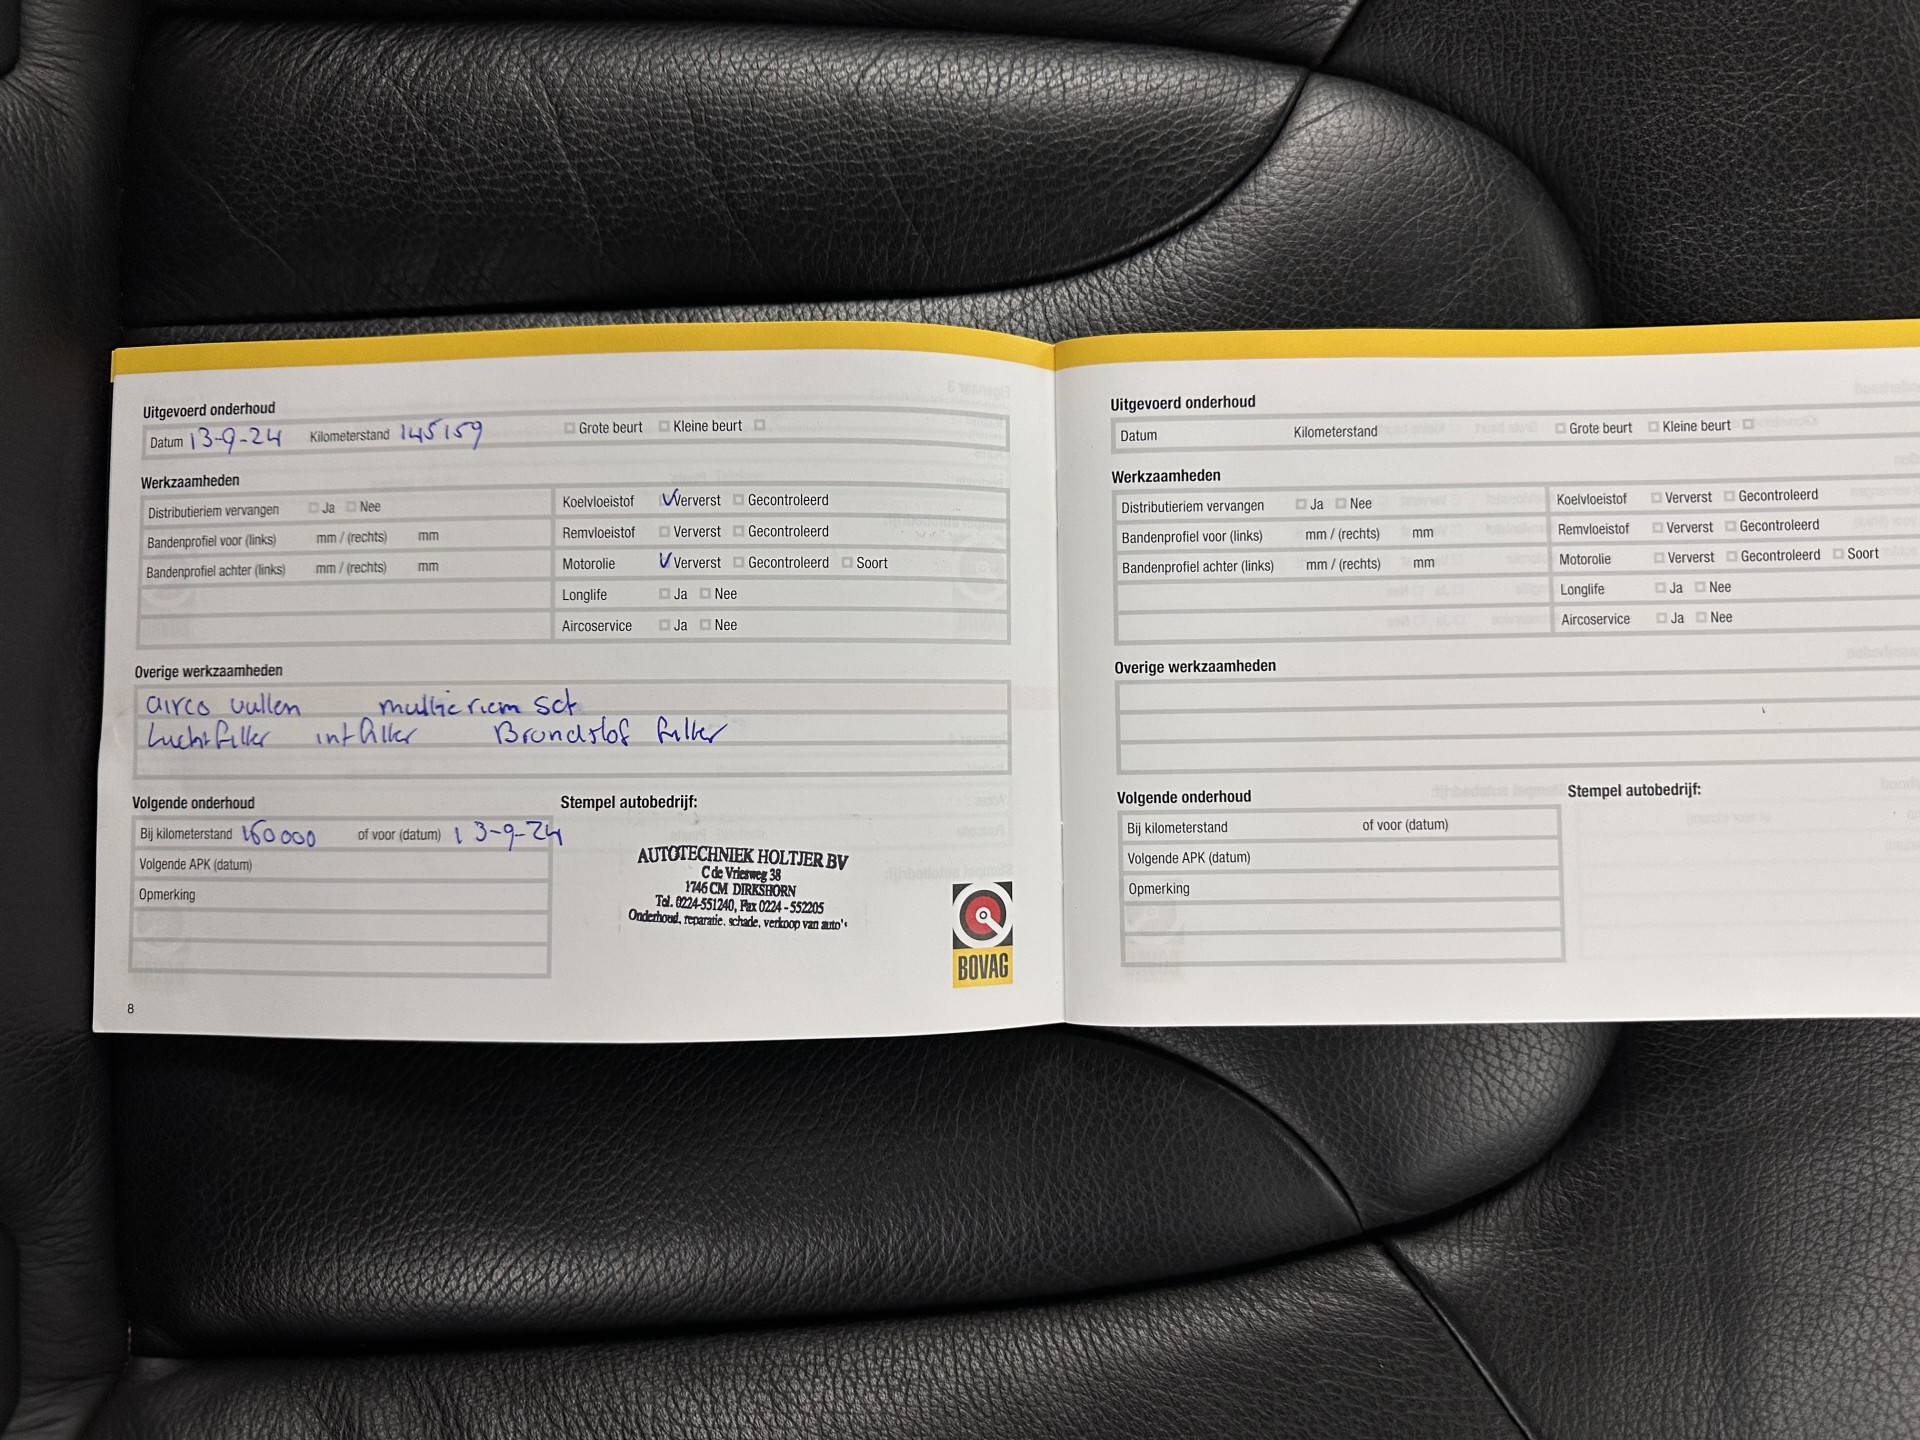 Uitgevoerd onderhoud
Datum 13-9-24 Kilometerstand 145159 Grote beurt Kleine beurt
Werkzaamheden
Distributieriem vervangen Ja Nee
Bandenprofiel voor (links) mm / (rechts) mm
Bandenprofiel achter (links) mm / (rechts) mm
Koelvloeistof Ververst Gecontroleerd
Remvloeistof Ververst Gecontroleerd
Motorolie Ververst Gecontroleerd Soort
Longlife Ja Nee
Aircoservice Ja Nee
Overige werkzaamheden
airco vullen multie riem set
Luchtfilter intfilter Brandstof filter
Volgende onderhoud
Bij kilometerstand 160000 of voor (datum) 13-9-24
Volgende APK (datum)
Opmerking
Stempel autobedrijf:
AUTOTECHNIEK HOLTJER BV
C de Vriesweg 38
1746 CM DIRKSHORN
Tel. 0224-551240, Fax 0224 - 552205
Onderhoud, reparatie, schade, verkoop van auto's
BOVAG
8
Uitgevoerd onderhoud
Datum Kilometerstand Grote beurt Kleine beurt
Werkzaamheden
Distributieriem vervangen Ja Nee
Bandenprofiel voor (links) mm / (rechts) mm
Bandenprofiel achter (links) mm / (rechts) mm
Koelvloeistof Ververst Gecontroleerd
Remvloeistof Ververst Gecontroleerd
Motorolie Ververst Gecontroleerd Soort
Longlife Ja Nee
Aircoservice Ja Nee
Overige werkzaamheden
Volgende onderhoud
Bij kilometerstand of voor (datum)
Volgende APK (datum)
Opmerking
Stempel autobedrijf: